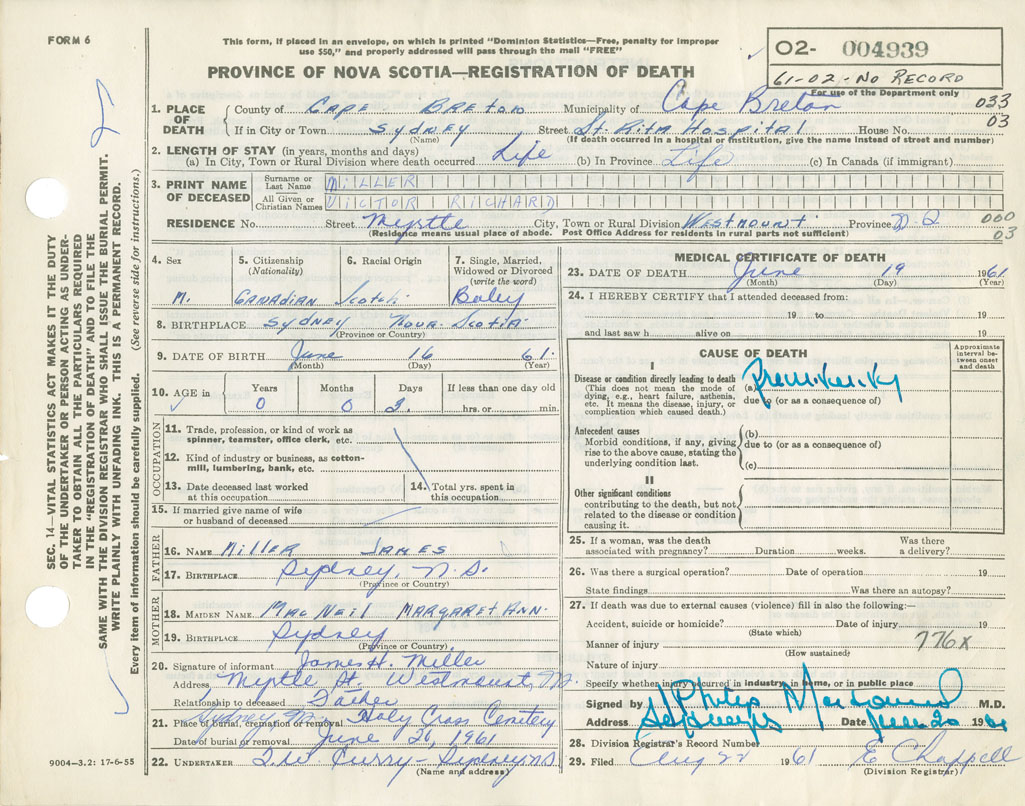 FORM 6
This form, if placed in an envelope, on which is printed "Dominion Statistics—Free, penalty for improper
use $50," and properly addressed will pass through the mail "FREE"
O2- 004939
61-02-NO RECORD
For use of the Department only
PROVINCE OF NOVA SCOTIA—REGISTRATION OF DEATH
033
03
1. PLACE OF DEATH County of CAPE BRETON Municipality of Cape Breton
If in City or Town SYDNEY Street St. Rita Hospital House No.
(Name) (If death occurred in a hospital or institution, give the name instead of street and number)
2. LENGTH OF STAY (in years, months and days)
(a) In City, Town or Rural Division where death occurred Life (b) In Province Life (c) In Canada (if immigrant)
3. PRINT NAME OF DECEASED
Surname or Last Name MILLER
All Given or Christian Names VICTOR RICHARD
RESIDENCE No. Street Myrtle City, Town or Rural Division WESTMOUNT Province
(Residence means usual place of abode. Post Office Address for residents in rural parts not sufficient)
000
03
4. Sex 5. Citizenship 6. Racial Origin 7. Single, Married,
(Nationality) Widowed or Divorced
(write the word)
M. CANADIAN Scotch Baby
8. BIRTHPLACE SYDNEY NOVA SCOTIA
(Province or Country)
9. DATE OF BIRTH June 16 61.
(Month) (Day) (Year)
10. AGE in Years Months Days If less than one day old
0 0 3. hrs. or min.
OCCUPATION
11. Trade, profession, or kind of work as
spinner, teamster, office clerk, etc.
12. Kind of industry or business, as cotton-
mill, lumbering, bank, etc.
13. Date deceased last worked 14. Total yrs. spent in
at this occupation this occupation
15. If married give name of wife
or husband of deceased
FATHER
16. NAME MILLER JAMES
17. BIRTHPLACE Sydney, N.S.
(Province or Country)
MOTHER
18. MAIDEN NAME MACNEIL MARGARET ANN.
19. BIRTHPLACE Sydney
(Province or Country)
20. Signature of informant James H. Miller
Address Myrtle St. Westmount,
Relationship to deceased Father
21. Place of burial, cremation or removal Sydney Holy Cross Cemetery
Date of burial or removal June 1961
22. UNDERTAKER Curry - Sydney NS
(Name and address)
MEDICAL CERTIFICATE OF DEATH
23. DATE OF DEATH June 19 1961
(Month) (Day) (Year)
24. I HEREBY CERTIFY that I attended deceased from:
19 to 19
and last saw h alive on 19
CAUSE OF DEATH
Approximate
interval be-
tween onset
and death
I
Disease or condition directly leading to death
(This does not mean the mode of
dying, e.g., heart failure, asthenia,
etc. It means the disease, injury, or
complication which caused death.)
(a) Prematurity
due to (or as a consequence of)
Antecedent causes
Morbid conditions, if any, giving
rise to the above cause, stating the
underlying condition last.
(b)
due to (or as a consequence of)
(c)
II
Other significant conditions
contributing to the death, but not
related to the disease or condition
causing it.
25. If a woman, was the death Was there
associated with pregnancy? Duration weeks. a delivery?
26. Was there a surgical operation? Date of operation 19
State findings Was there an autopsy?
27. If death was due to external causes (violence) fill in also the following:—
Accident, suicide or homicide? Date of injury 19
(State which)
Manner of injury 776x
(How sustained)
Nature of injury
Specify whether injury occurred in industry, in home, or in public place
Signed by M.D.
Address Date June 20 1961
28. Division Registrar's Record Number
29. Filed Aug 22 1961 E Chappell
(Division Registrar)
SEC. 14—VITAL STATISTICS ACT MAKES IT THE DUTY
OF THE UNDERTAKER OR PERSON ACTING AS UNDER-
TAKER TO OBTAIN ALL THE PARTICULARS REQUIRED
IN THE "REGISTRATION OF DEATH" AND TO FILE THE
SAME WITH THE DIVISION REGISTRAR WHO SHALL ISSUE THE BURIAL PERMIT.
WRITE PLAINLY WITH UNFADING INK. THIS IS A PERMANENT RECORD.
Every item of information should be carefully supplied. (See reverse side for instructions.)
9004—3.2: 17-6-55